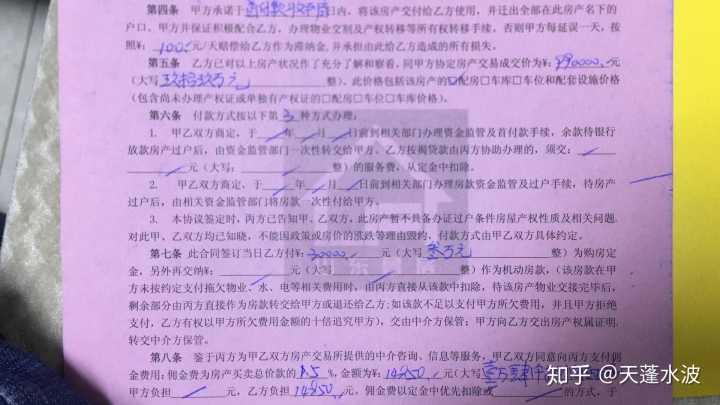 第四条 甲方承诺于 首付款收齐后 日内，将该房产交付给乙方使用，并迁出全部在此房产名下的
户口。甲方并保证积极配合乙方，办理物业交割及产权转移等所有权转移手续。否则甲方每延误一天，按
照¥：100元/天赔偿给乙方作为滞纳金，并承担由此给乙方造成的所有损失。
第五条 乙方已对以上房产状况作了充分了解和察看。同甲方协定房产交易成交价为¥：990000元
（大写 玖拾玖万元 整）。此价格包括该房产的☑配房☐车库☐车位和配套设施价格
（包含尚未办理产权证或单独有产权证的☐配房☐车位☐车库价格）。
第六条 付款方式按以下第 3 种方式办理：
1. 甲乙双方商定，于 年 月 日前到相关部门办理资金监管及首付款手续，余款待银行
放款房产过户后，由资金监管部门一次性转交给甲方。乙方按揭贷款由丙方协助办理的，须交：
元（大写： 整）的服务费，从定金中扣除。
2. 甲乙双方商定，于 年 月 日前到相关部门办理房款资金监管及过户手续，待房产
过户后，由相关资金监管部门将房款一次性付给甲方。
3. 本协议签定时，丙方已告知甲、乙双方，此房产暂不具备办证过户条件房屋产权性质及相关问题。
对此甲、乙双方均已知晓，不能因政策或房价的涨跌等理由毁约，付款方式由甲乙双方具体约定。
第七条 此合同签订当日乙方付¥：30000元（大写 叁万元 整）为购房定
金，另外再交纳¥： 元（大写 整）作为机动房款，（该房款在甲
方未按约定支付拖欠物业、水、电等相关费用时，由丙方直接从该款中扣除，待该房产物业交接完毕后，
剩余部分由丙方直接作为房款转交给甲方或退还给乙方；如该款不足以支付甲方所欠费用，并且甲方拒绝
支付，乙方有权以甲方所欠费用金额的十倍追究甲方），交由中介方保管；甲方向乙方交出房产权属证明，
转交中介方保管。
第八条 鉴于丙方为甲乙双方房产交易所提供的中介咨询、信息等服务，甲乙双方同意向丙方支付佣
金费用：佣金费为房产买卖总价款的 1.5 %，金额为¥：14850元（大写 壹万肆仟
甲方负担 元，乙方负担 14850 元，佣金费以定金中优先扣除或 的方式，于
知乎 @天蓬水波